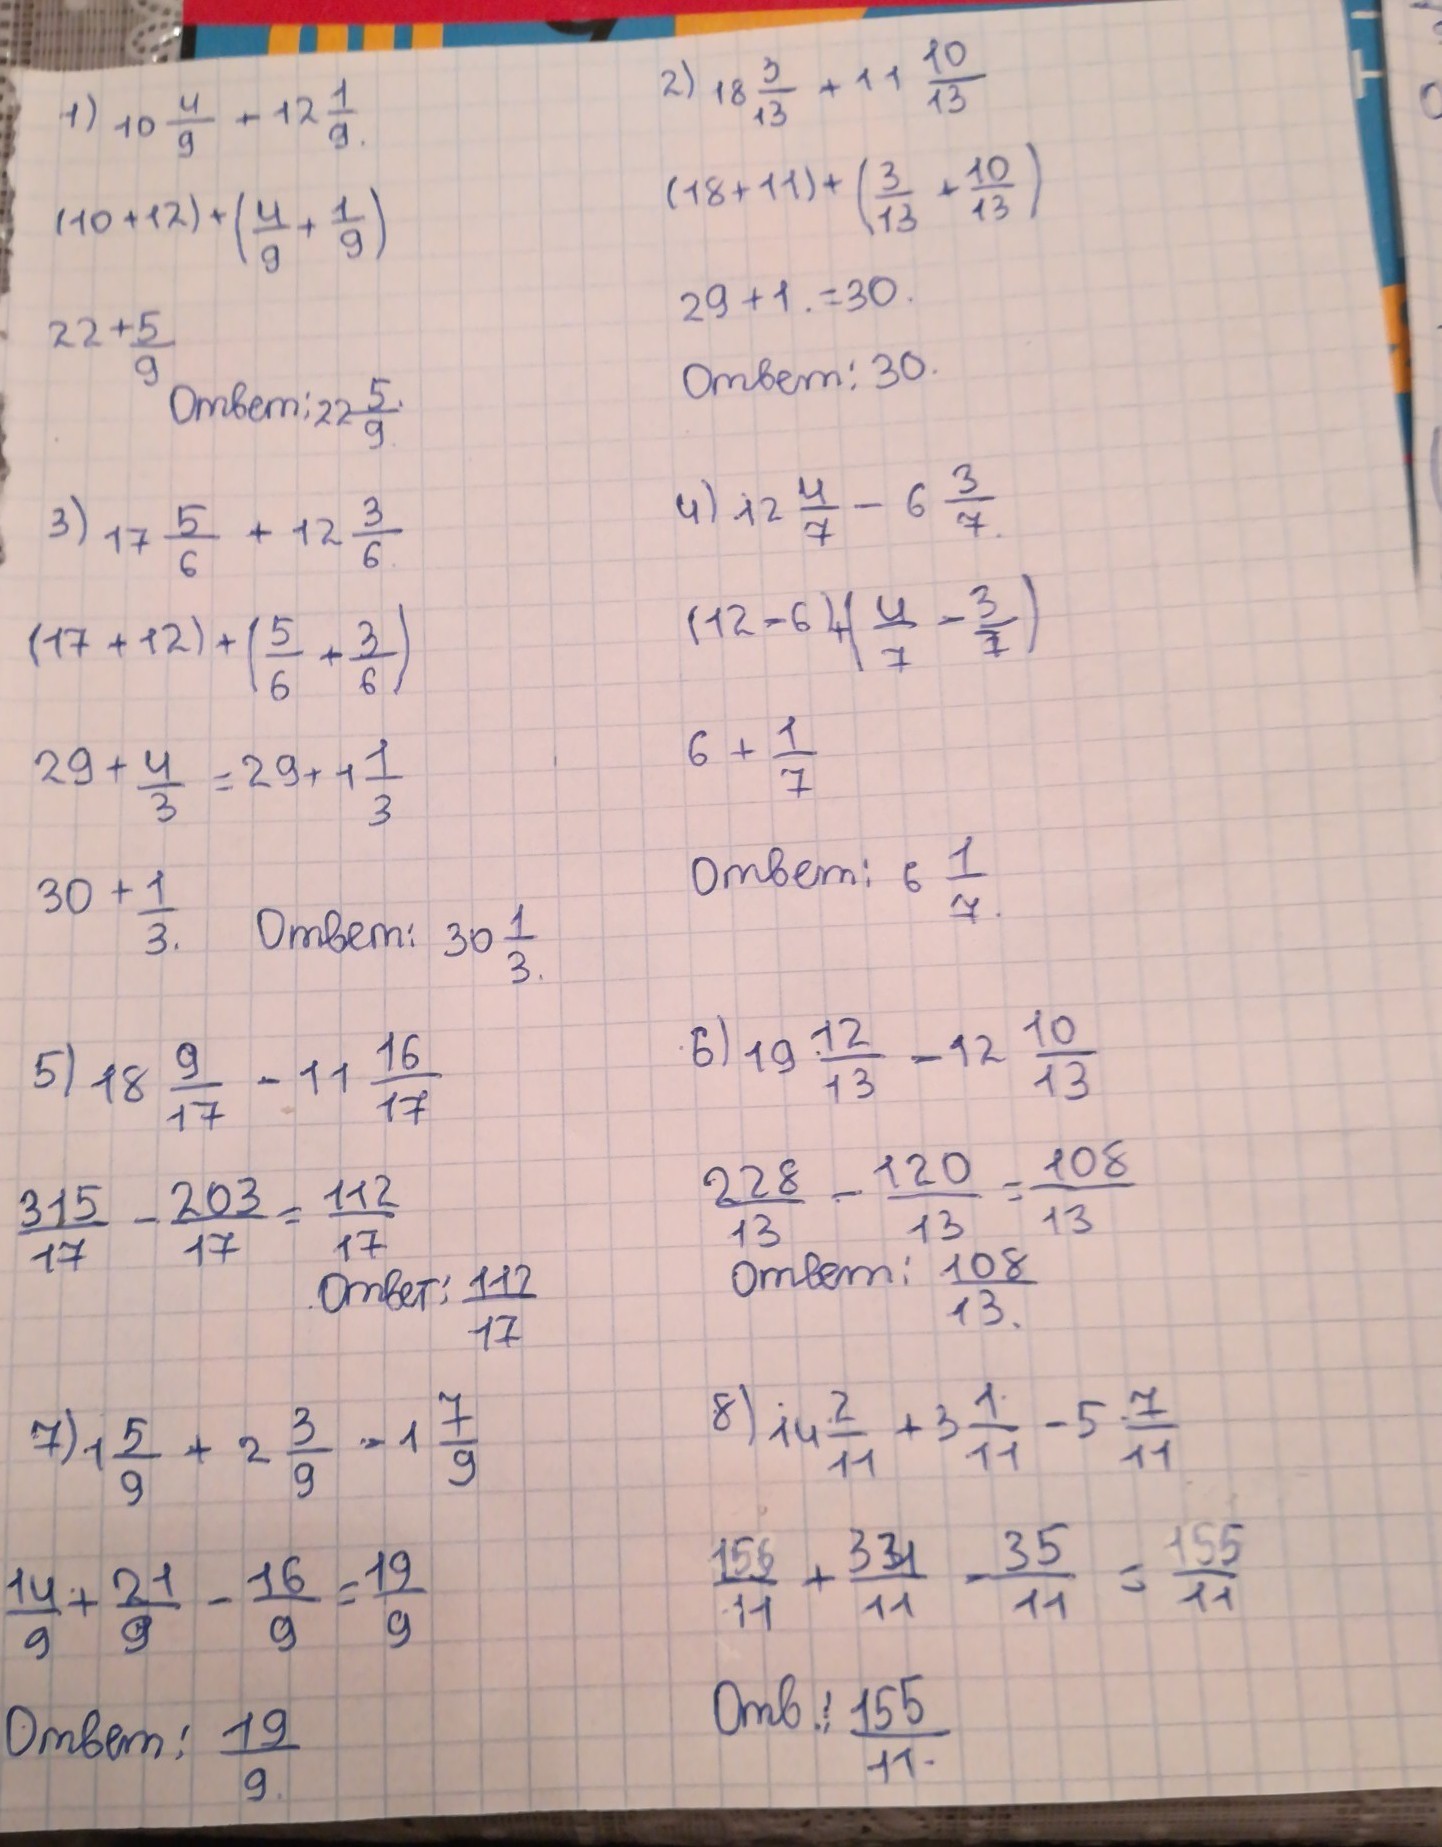 1) 10 4/9 + 12 1/9.
(10+12)+(4/9+1/9)
22+5/9
Ответ: 22 5/9.
2) 18 3/13 + 11 10/13
(18+11)+(3/13+10/13)
29+1.=30.
Ответ: 30.
3) 17 5/6 + 12 3/6.
(17+12)+(5/6+3/6)
29+4/3=29+1 1/3
30+1/3.
Ответ: 30 1/3.
4) 12 4/7 - 6 3/7.
(12-6)+(4/7-3/7)
6+1/7
Ответ: 6 1/7.
5) 18 9/17 - 11 16/17
315/17 - 203/17 = 112/17
Ответ: 112/17
6) 19 12/13 - 12 10/13
228/13 - 120/13 = 108/13
Ответ: 108/13.
7) 1 5/9 + 2 3/9 - 1 7/9
14/9 + 21/9 - 16/9 = 19/9
Ответ: 19/9.
8) 14 2/11 + 3 1/11 - 5 7/11
156/11 + /11 - 35/11 = 155/11
Отв.: 155/11.